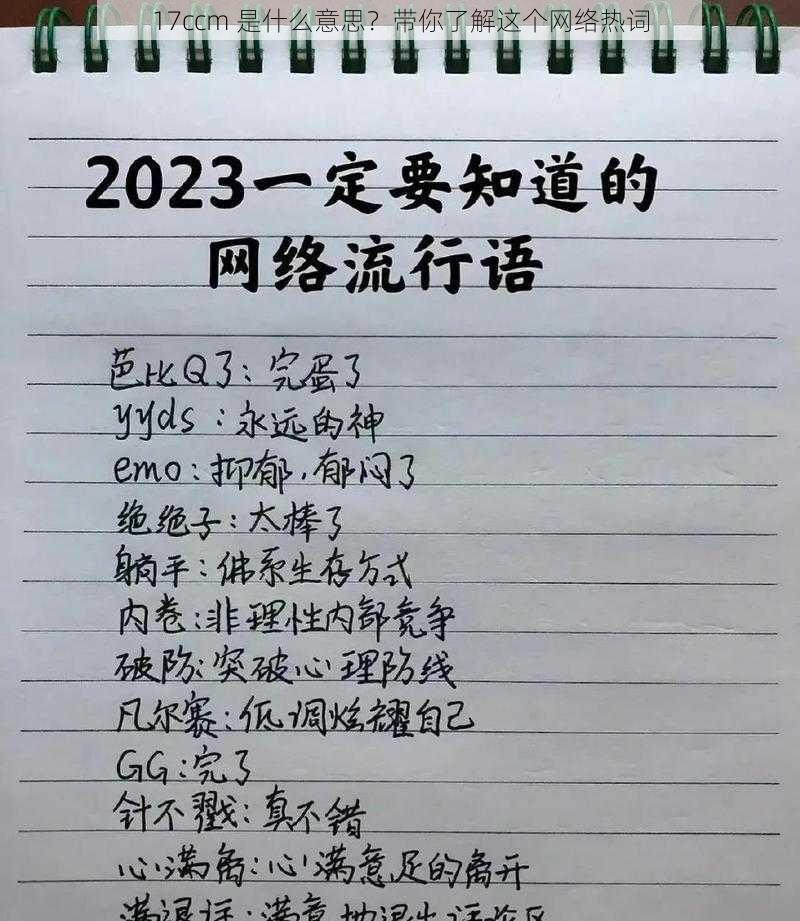 17ccm 是什么意思？带你了解这个网络热词
2023一定要知道的
网络流行语
芭比Q了：完蛋了
yyds：永远的神
emo：抑郁，郁闷了
绝绝子：太棒了
躺平：佛系生存方式
内卷：非理性内部竞争
破防：突破心理防线
凡尔赛：低调炫耀自己
GG：完了
针不戳：真不错
心满离：心满意足的离开